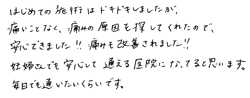 はじめての施術はドキドキしましたが、
痛いことなく、痛みの原因を探してくれたので、
安心できました!! 痛みも改善されました!!
妊婦さんでも安心して通える医院になってると思います。
毎日でも通いたいくらいです。